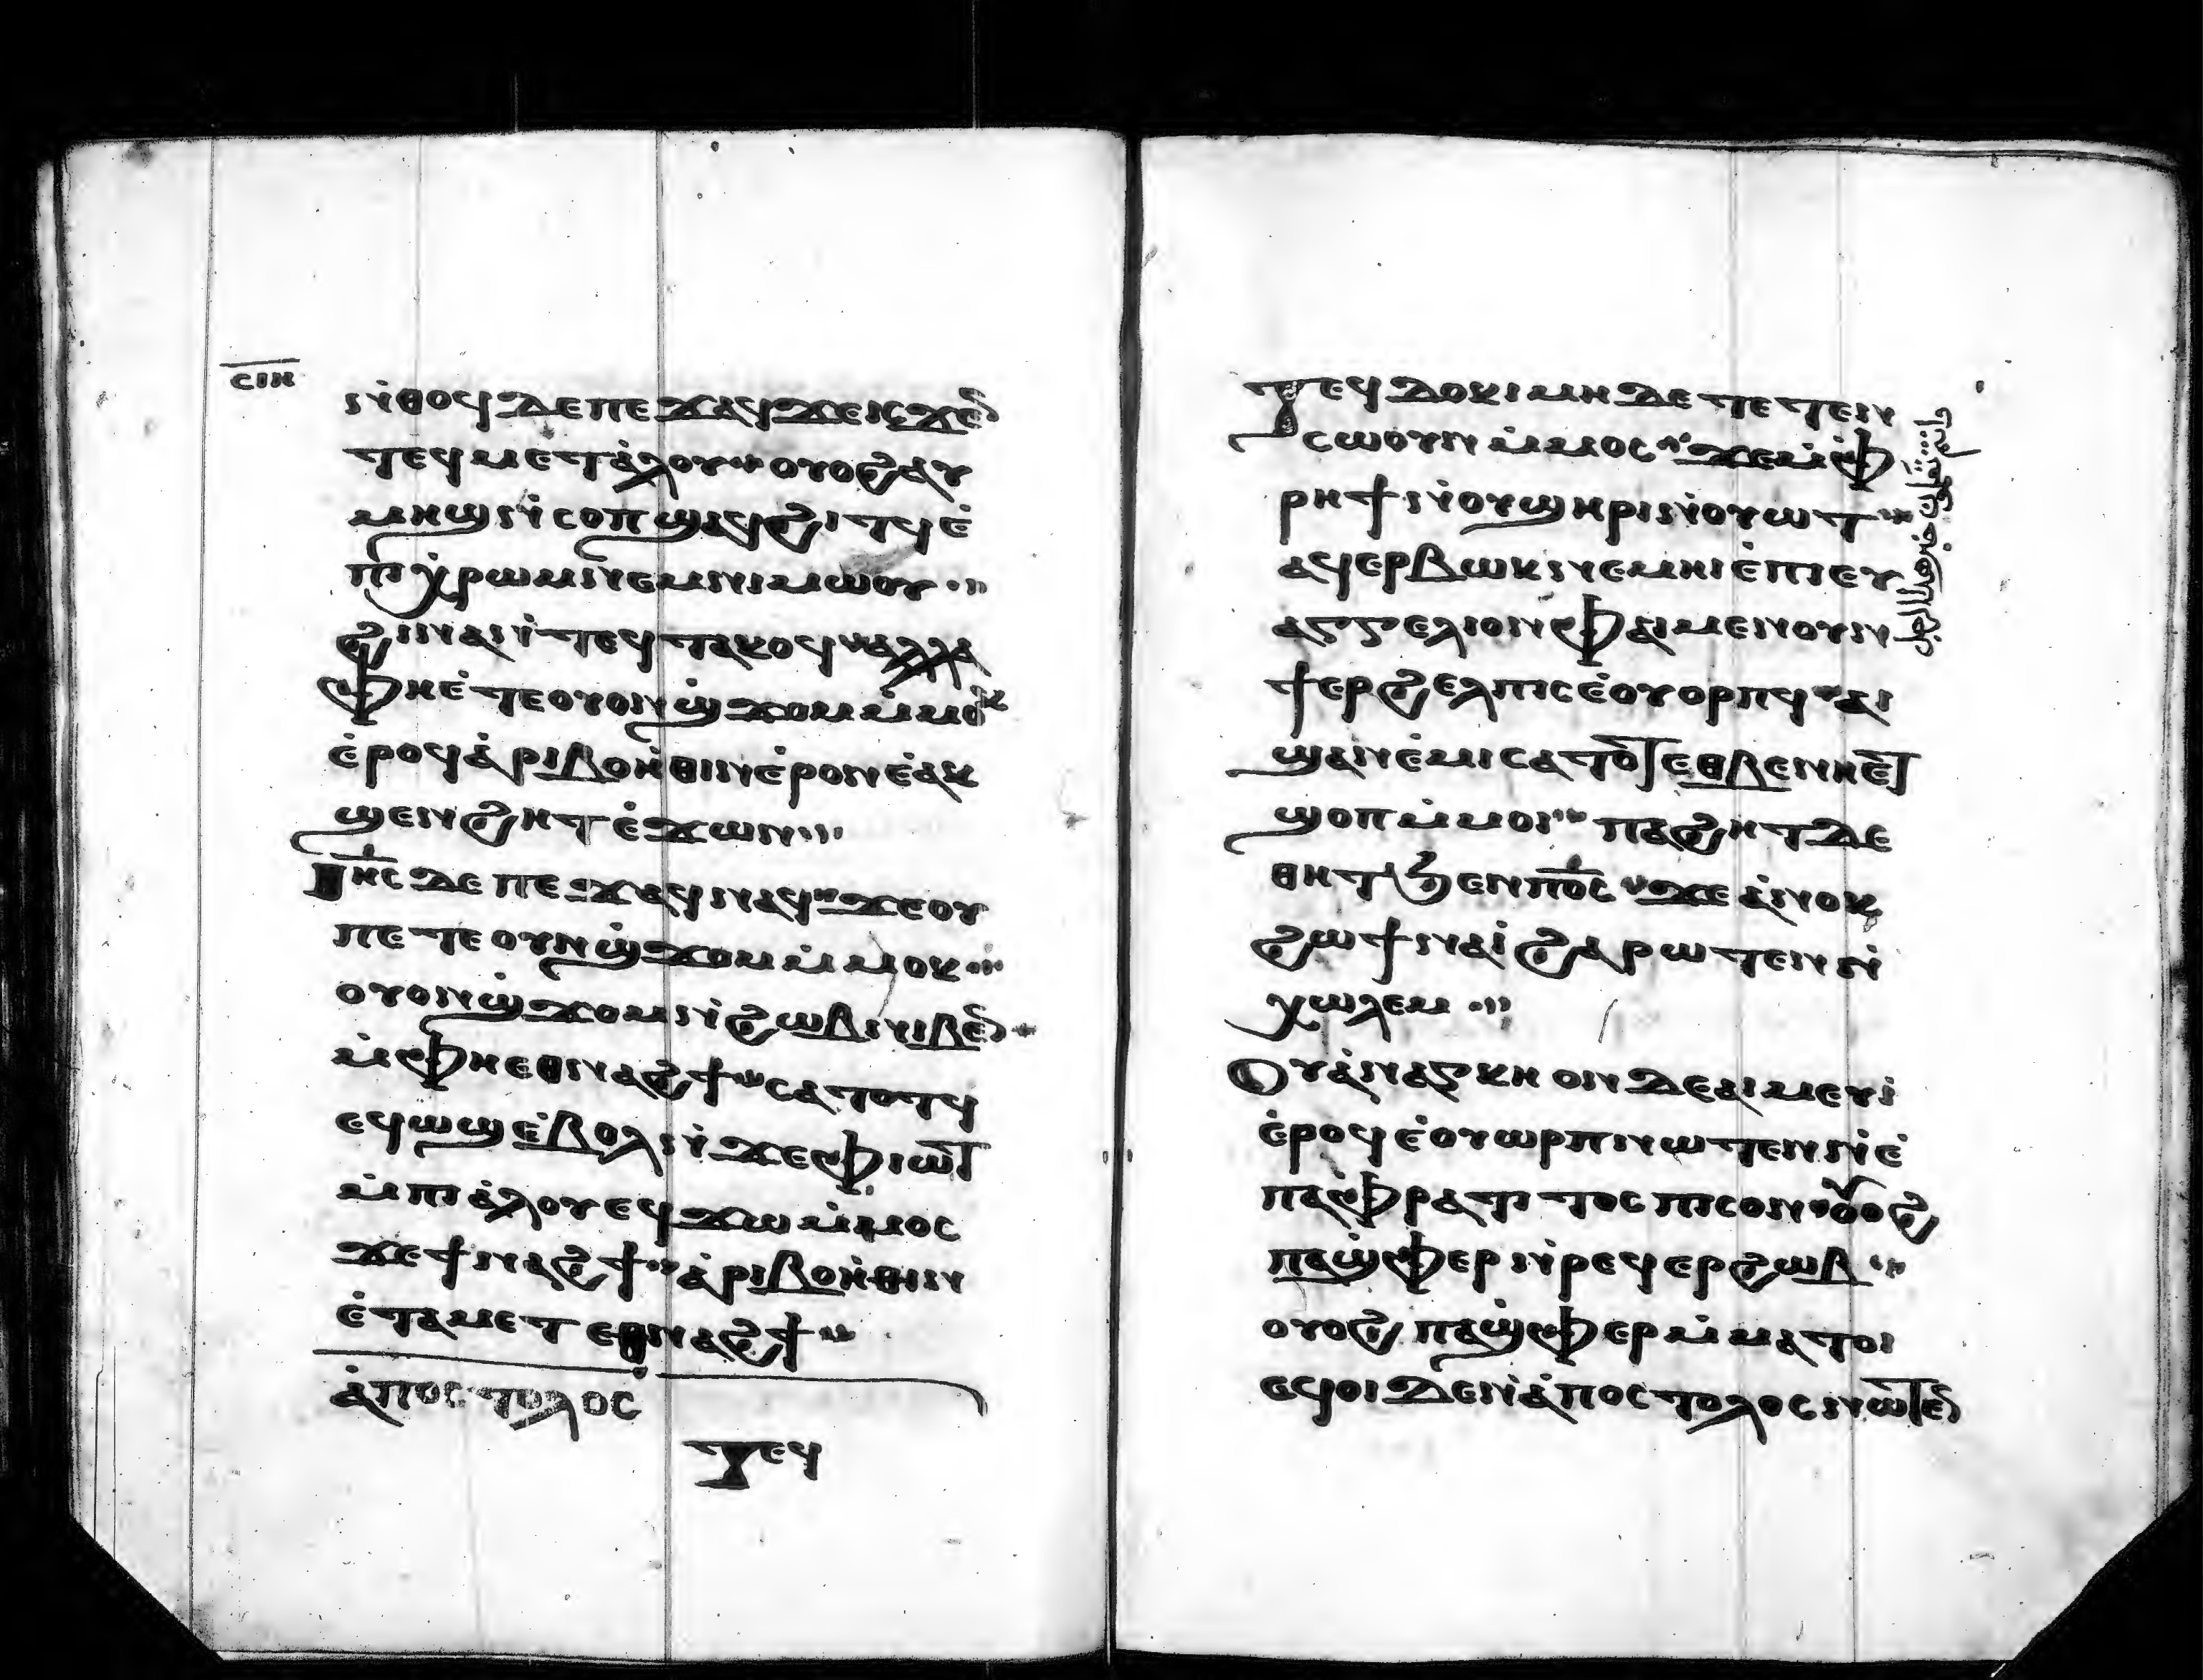 ⲤⲒⲎ
ⲛ̀ⲑⲟϥ ⲇⲉ ⲡⲉϫⲁϥ ϫⲉ ⲓⲥϫⲉⲛ
ⲧⲉϥⲙⲉⲧⲁ̀ⲗⲟⲩ ⲟⲩⲟϩ ⲁⲩ
ⲙⲏϣ ⲛ̀ⲥⲟⲡ ϣⲁϥϩⲓⲧϥ ⲉ̀
ⲡⲓⲭⲣⲱⲙ ⲛⲉⲙ ⲛⲓⲙⲱⲟⲩ
ϩⲓⲛⲁ ⲛ̀ⲧⲉϥⲧⲁⲕⲟϥ ⲁⲗⲗⲁ
ⲫⲏⲉ̀ⲧⲉ ⲟⲩⲟⲛ ϣ̀ϫⲟⲙ ⲙ̀ⲙⲟⲕ
ⲉ̀ⲣⲟϥ ⲁ̀ⲣⲓⲃⲟⲏ̀ⲑⲓⲛ ⲉ̀ⲣⲟⲛ ⲉ̀ⲁⲕ
ϣⲉⲛϩⲏⲧ ⲉ̀ϫⲱⲛ
Ⲓⲏ̅ⲥ ⲇⲉ ⲡⲉϫⲁϥ ⲛⲁϥ ϫⲉ ⲟⲩ
ⲡⲉⲧⲉ ⲟⲩⲛ ϣ̀ϫⲟⲙ ⲙ̀ⲙⲟⲕ
ⲟⲩⲟⲛ ϣ̀ϫⲟⲙ ⲛ̀ϩⲱⲃ ⲛⲓⲃⲉⲛ
ⲙ̀ⲫⲏⲉⲑⲛⲁϩϯ ⲥⲁⲧⲟⲧϥ
ⲉϥⲱϣ ⲉ̀ⲃⲟⲗ ⲛ̀ϫⲉ ⲫⲓⲱⲧ
ⲙ̀ⲡⲓⲁ̀ⲗⲟⲩ ⲉϥϫⲱ ⲙ̀ⲙⲟⲥ
ϫⲉ ϯⲛⲁϩϯ ⲁ̀ⲣⲓⲃⲟⲏ̀ⲑⲓⲛ
ⲉ̀ⲧⲁⲙⲉⲧⲉⲑⲛⲁϩϯ
ⲁ̀ⲡⲟⲥⲧⲟⲗⲟⲥ
Ⲧⲉϥ
Ⲧⲉϥⲇⲟⲕⲓⲙⲏ ⲇⲉ ⲧⲉⲧⲉⲛ
ⲥⲱⲟⲩⲛ ⲙ̀ⲙⲟⲥ ϫⲉ ⲙ̀ⲫ
ⲣⲏϯ ⲛ̀ⲟⲩϣⲏⲣⲓ ⲛ̀ⲟⲩⲱⲧ
ⲁϥⲉⲣⲃⲱⲕ ⲛⲉⲙⲏⲓ ⲉ̀ⲡⲓⲉⲩ
ⲁⲅⲅⲉⲗⲓⲟⲛ ⲫⲁⲓ ⲙⲉⲛ ⲟⲩⲛ
ϯⲉⲣϩⲉⲗⲡⲓⲥ ⲉ̀ⲟⲩⲟⲣⲡϥ ⲁⲓ
ϣⲁⲛⲉ̀ⲙⲓ ⲥⲁⲧⲟⲧ ⲉⲑⲃⲉ ⲛⲏⲉⲧ
ϣⲟⲡ ⲙ̀ⲙⲟⲓ ⲡⲁϩⲏⲧ ⲇⲉ
ⲑⲏⲧ ϧⲉⲛ ⲡⲟ̅ⲥ ϫⲉ ⲁ̀ⲛⲟⲕ
ϩⲱ ϯⲛⲁⲓ̀ ϩⲁⲣⲱⲧⲉⲛ ⲛ̀
ⲭⲱⲗⲉⲙ
Ⲟⲩⲁ̀ⲛⲁⲅⲕⲏ ⲟⲛ ⲇⲉ ⲁⲓⲙⲉⲩⲓ
ⲉ̀ⲣⲟϥ ⲉ̀ⲟⲩⲱⲣⲡ ⲛⲱⲧⲉⲛ ⲛ̀ⲉ̀
ⲡⲁⲫⲣⲁⲧⲓⲧⲟⲥ ⲡⲓⲥⲟⲛ ⲟⲩⲟϩ
ⲡⲁϣ̀ⲫⲉⲣ ⲛ̀ⲣⲉϥⲉⲣϩⲱⲃ
ⲟⲩⲟϩ ⲡⲁϣ̀ⲫⲉⲣ ⲙ̀ⲙⲁⲧⲟⲓ
ⲉϥⲟⲓ ⲇⲉ ⲛ̀ⲁ̀ⲡⲟⲥⲧⲟⲗⲟⲥ ⲛⲱⲧⲉⲛ